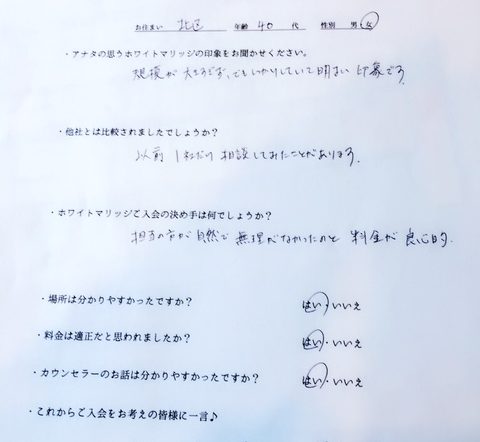 お住まい 北区 年齢 40 代 性別 男・女
・アナタの思うホワイトマリッジの印象をお聞かせください。
規模が大きすぎず、でもしっかりしていて明るい印象です
・他社とは比較されましたでしょうか？
以前1社だけ相談してみたことがあります。
・ホワイトマリッジご入会の決め手は何でしょうか？
担当の方が自然で無理がなかったのと料金が良心的。
・場所は分かりやすかったですか？ はい・いいえ
・料金は適正だと思われましたか？ はい・いいえ
・カウンセラーのお話は分かりやすかったですか？ はい・いいえ
・これからご入会をお考えの皆様に一言♪